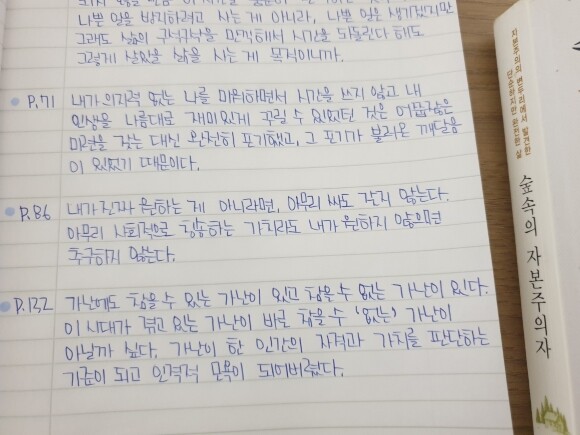 나쁜 일을 방지하려고 사는 게 아니라, 나쁜 일을 생기겠지만
그래도 삶의 구석구석을 만끽해서 시간을 되돌린다 해도
그렇게 살았을 삶을 사는 게 목적이니까.
P.71 내가 의지력 없는 나를 미워하면서 시간을 쓰지 않고 내
인생을 나름대로 재미있게 꾸릴 수 있었던 것은 어쭙잖은
미련을 갖는 대신 완전히 포기했고, 그 포기가 불러온 깨달음
이 있었기 때문이다.
P.86 내가 진짜 원하는 게 아니라면, 아무리 싸도 갖지 않는다.
아무리 사회적으로 칭송하는 가치라도 내가 원하지 않으면
추구하지 않는다.
P.132 가난에도 참을 수 있는 가난이 있고 참을 수 없는 가난이 있다.
이 시대가 겪고 있는 가난이 바로 참을 수 '없는' 가난이
아닐까 싶다. 가난이 한 인간의 자격과 가치를 판단하는
기준이 되고 인격적 모욕이 되어버렸다.
자본주의의 변두리에서 발견한
단순하지만 완전한 삶
숲속의 자본주의자